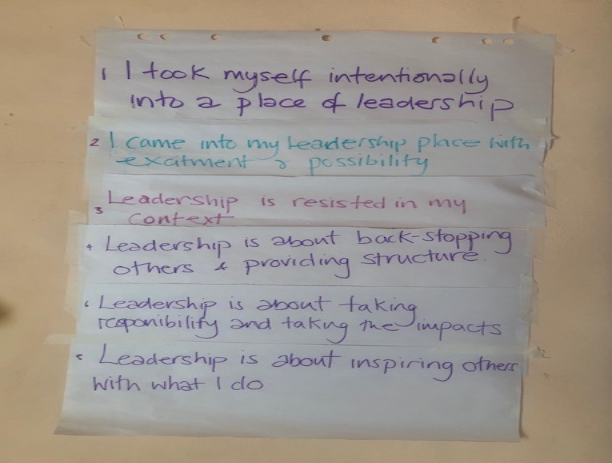 1 I took myself intentionally
into a place of leadership
2 I came into my Leadership place with
exatment & possibility
3 Leadership is resisted in my
context
4 Leadership is about back-stopping
others & providing structure.
Leadership is about taking
responibility and taking the impacts
Leadership is about inspiring others
with what I do